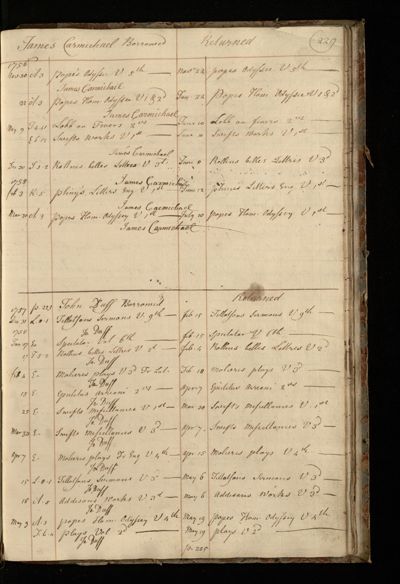 James Carmichael Borrowed Returned 229
1756
Nov 20 A. 3 Popes Odyssey V 5th — Novr 24 popes Odyssey V 5th —
James Carmichael
22 A. 3 popes Hom: Odyssey V 1 & 2 Jan 24 Popes Hom: Odyssey V 1 & 2
James Carmichael
Lobb on Fevers 2 Lobb on fevers 2
Swifts Works V 1st — Swifts Works V 1st
James Carmichael
Rollins belles Lettres V 3d Rollins belles Lettres V 3d
1758 James Carmichael
Feb 3 K. 5 pliny's Letters Eng V 1st 12 pliny's Letters Eng V 1st
James Carmichael
20 A. 3 Popes Hom: Odyssey V 1st — July 10 popes Hom: Odyssey V 1st —
James Carmichael
1757 p. 221 John Duff Borrowed Returned
L. 0. 1 Tillotsons Sermons V. 9th — feb 15 Tillotsons Sermons V 9th —
1758 Jo Duff
Spectator Vol 6th feb 17 Spectator V 6th
Rollins belles Lettres V 2d feb 4 Rollins belles Lettres V 2d
Jo Duff
feb 4 E. Molieres plays V 3d Feb 18 molieres plays V 3d
Jo Duff
18 E. Epictetus 2 Apr 7 Epictetus 2
Jo Duff
25 E. Swifts Miscellanies V 1st — Mar 20 Swifts miscellanies V 1st
Jo Duff
Mar 20 E. Swifts Miscellanies V 3d — Apr 7 Swifts Miscellanies V 3d
Jo Duff
Apr 7 E. Molieres plays Eng V 4th — Apr 15 Molieres plays V 4th —
Jo Duff
15 L. 0. 1 Tillotsons Sermons V 3d May 6 Tillotsons Sermons V 3d
Jo Duff
18 A. 5 Addisons Works V 3d — May 6 Addisons Works V 3d —
Jo Duff
May 9 A. 3 popes Hom: Odyssey V 4th May 19 Popes Hom: Odyssey V 4th
plays Vol 2d — May 19 plays V 2d
Jo Duff
p. 225